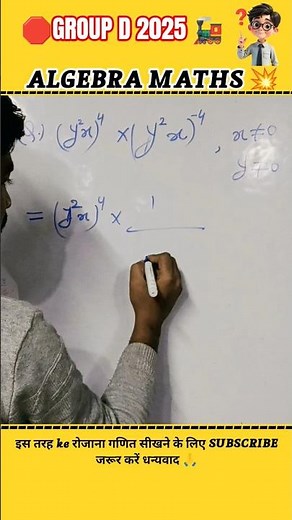 🛑GROUP D 2025 🚂
ALGEBRA MATHS 💥
Q:) (y²x)⁴ × (y²x)⁻⁴ , x≠0
y≠0
= (y²x)⁴ × 1
इस तरह ke रोजाना गणित सीखने के लिए SUBSCRIBE
जरूर करें धन्यवाद 🙏